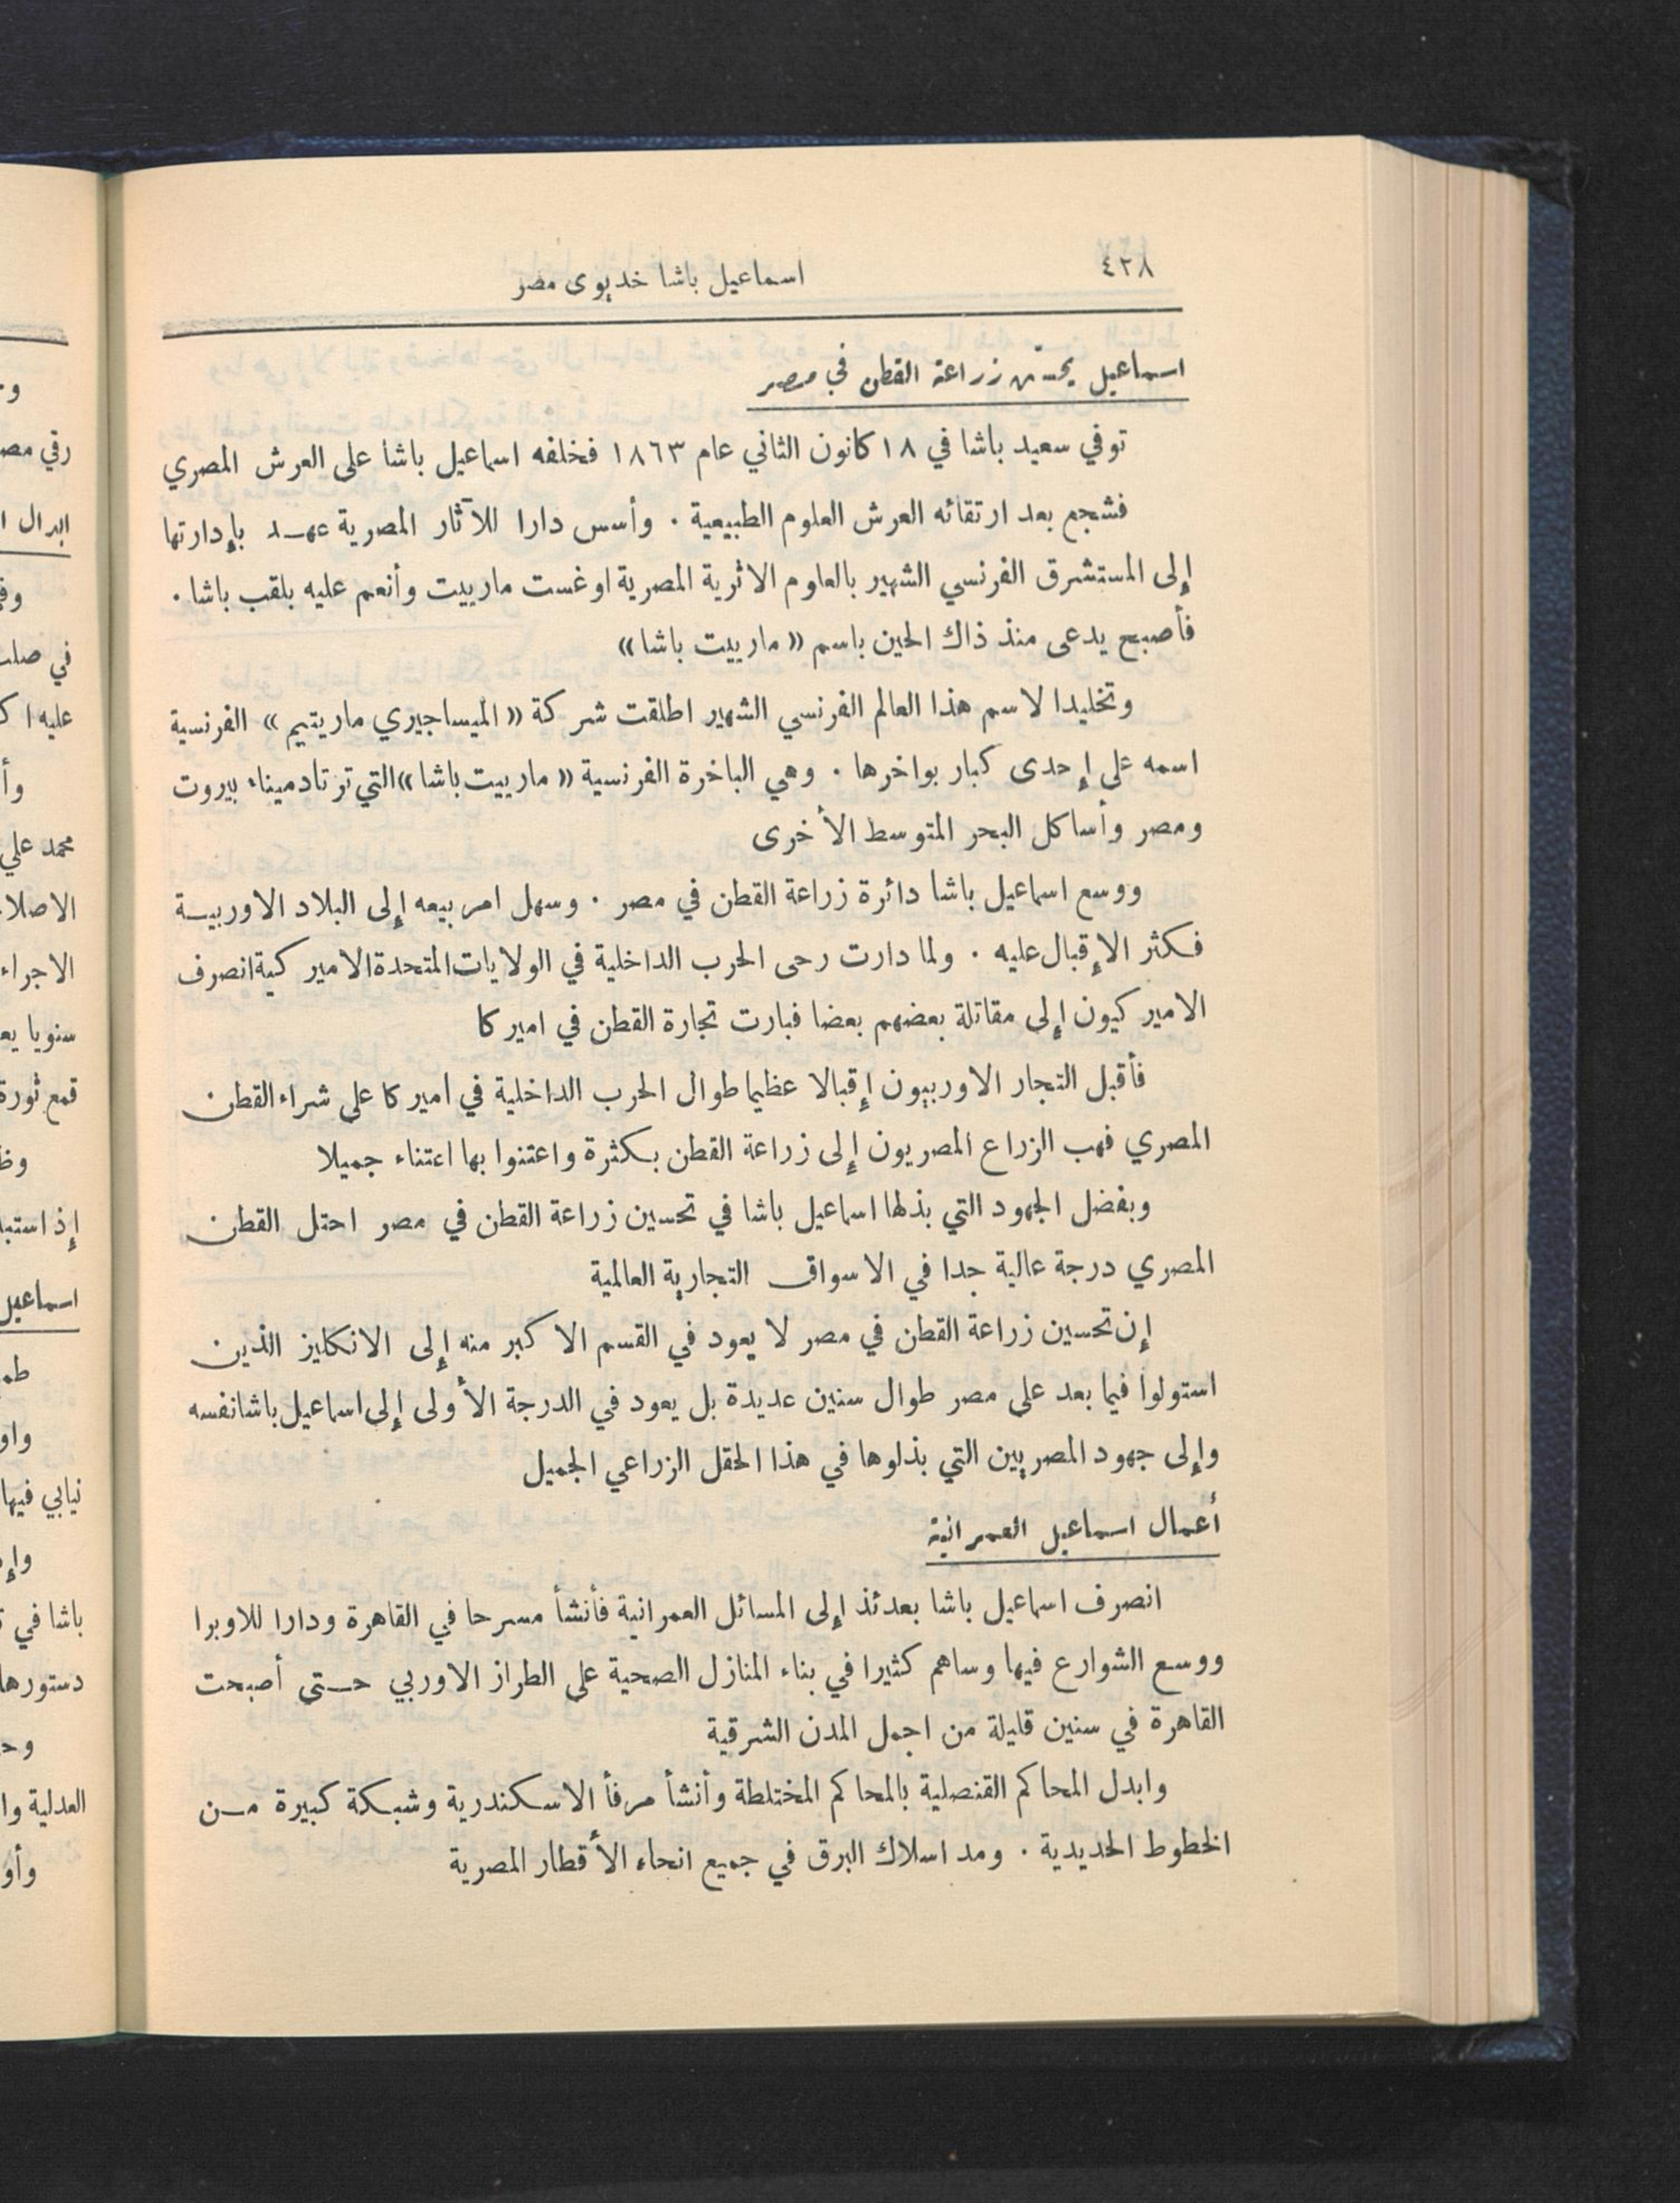 ٤٢٨
اسماعيل باشا خديوى مصر
اسماعيل يحسّن زراعة القطن في مصر
توفي سعيد باشا في ١٨ كانون الثاني عام ١٨٦٣ فخلفه اسماعيل باشا على العرش المصري
فشجع بعد ارتقائه العرش العلوم الطبيعية . وأسس دارا للآثار المصرية عهد بإدارتها
إلى المستشرق الفرنسي الشهير بالعلوم الاثرية المصرية اوغست مارييت وأنعم عليه بلقب باشا .
فأصبح يدعى منذ ذاك الحين باسم « مارييت باشا »
وتخليدا لاسم هذا العالم الفرنسي الشهير اطلقت شركة « الميساجيري ماريتيم » الفرنسية
اسمه على إحدى كبار بواخرها . وهي الباخرة الفرنسية « مارييت باشا » التي ترتاد ميناء بيروت
ومصر وأساكل البحر المتوسط الأخرى
ووسع اسماعيل باشا دائرة زراعة القطن في مصر . وسهل امر بيعه إلى البلاد الاوربية
فكثر الإقبال عليه . ولما دارت رحى الحرب الداخلية في الولايات المتحدة الاميركية انصرف
الاميركيون إلى مقاتلة بعضهم بعضا فبارت تجارة القطن في اميركا
فأقبل التجار الاوربيون إقبالا عظيما طوال الحرب الداخلية في اميركا على شراء القطن
المصري فهب الزراع المصريون إلى زراعة القطن بكثرة واعتنوا بها اعتناء جميلا
وبفضل الجهود التي بذلها اسماعيل باشا في تحسين زراعة القطن في مصر احتل القطن
المصري درجة عالية جدا في الاسواق التجارية العالمية
إن تحسين زراعة القطن في مصر لا يعود في القسم الاكبر منه إلى الانكليز الذين
استولوا فيما بعد على مصر طوال سنين عديدة بل يعود في الدرجة الأولى إلى اسماعيل باشا نفسه
وإلى جهود المصريين التي بذلوها في هذا الحقل الزراعي الجميل
أعمال اسماعيل العمرانية
انصرف اسماعيل باشا بعدئذ إلى المسائل العمرانية فأنشأ مسرحا في القاهرة ودارا للاوبرا
ووسع الشوارع فيها وساهم كثيرا في بناء المنازل الصحية على الطراز الاوربي حتى أصبحت
القاهرة في سنين قليلة من اجمل المدن الشرقية
وابدل المحاكم القنصلية بالمحاكم المختلطة وأنشأ مرفأ الاسكندرية وشبكة كبيرة من
الخطوط الحديدية . ومد اسلاك البرق في جميع انحاء الأقطار المصرية